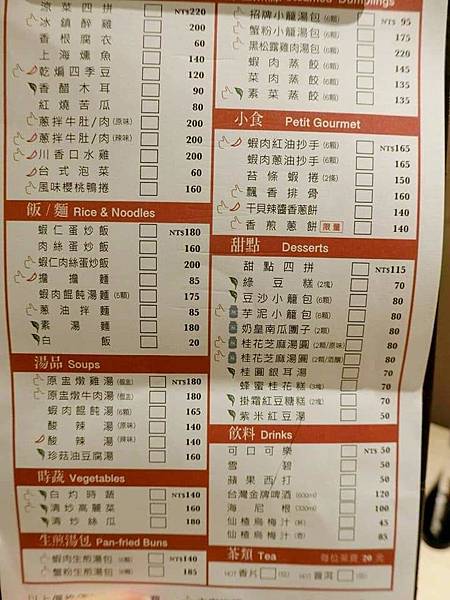 涼菜四拼 NT$220
冰鎮醉雞 200
香根腐衣 60
上海燻魚 140
乾煸四季豆 120
香醋木耳 90
紅燒苦瓜 80
蔥拌牛肚/肉(原味) 200
蔥拌牛肚/肉(辣味) 200
川香口水雞 200
台式泡菜 60
風味櫻桃鴨捲 160
飯/麵 Rice & Noodles
蝦仁蛋炒飯 NT$180
肉絲蛋炒飯 160
蝦仁肉絲蛋炒飯 200
擔擔麵 85
蝦肉餛飩湯麵(6顆) 175
蔥油拌麵 85
素湯麵 80
白飯 20
湯品 Soups
原盅燉雞湯 NT$180
原盅燉牛肉湯 180
蝦肉餛飩湯(6顆) 165
酸辣湯(原味) 140
酸辣湯(辣味) 140
珍菇油豆腐湯 160
時蔬 Vegetables
白灼時蔬 NT$140
清炒高麗菜 160
清炒絲瓜 180
生煎湯包 Pan-fried Buns
蝦肉生煎湯包(6顆) NT$140
蟹粉生煎湯包(6顆) 185
Dumplings
招牌小籠湯包(6顆) NT$ 95
蟹粉小籠湯包(6顆) 175
黑松露雞肉湯包(6顆) 220
蝦肉蒸餃(6顆) 145
菜肉蒸餃(6顆) 135
素菜蒸餃(6顆) 135
小食 Petit Gourmet
蝦肉紅油抄手(6顆) NT$165
蝦肉蔥油抄手(6顆) 165
苔條蝦捲(2條) 150
飄香排骨 160
干貝辣醬香蔥餅 140
香煎蔥餅 限量 140
甜點 Desserts
甜點四拼 NT$115
綠豆糕(2塊) 70
豆沙小籠包(6顆) 80
芋泥小籠包(6顆) 80
奶皇南瓜團子(2顆) 80
桂花芝麻湯圓(2顆/原味) 80
桂花芝麻湯圓(2顆/酒釀) 80
桂圓銀耳湯 70
蜂蜜桂花糕(3塊) 70
掛霜紅豆糯糕(2塊) 70
紫米紅豆湯 50
飲料 Drinks
可口可樂 NT$ 50
雪碧 50
蘋果西打 50
台灣金牌啤酒(600ml) 120
海尼根(330ml) 100
仙楂烏梅汁(杯) 45
仙楂烏梅汁(壺) 85
茶類 Tea 每位茶資 20 元
HOT香片 HOT普洱